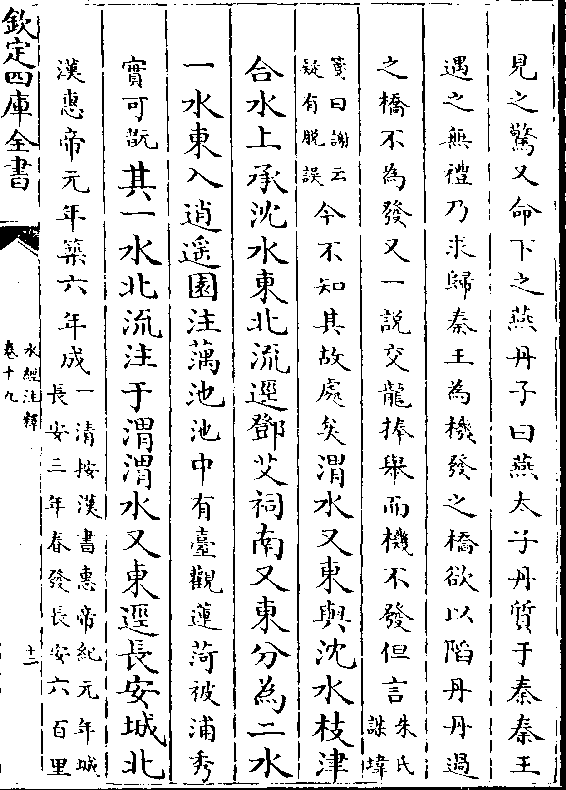 見之驚又命下之燕丹子曰燕太子丹質于秦秦王
遇之無禮乃求歸秦王為機發之橋欲以陷丹丹過
之橋不為發又一說交龍捧轝而機不發但言朱氏
謀㙔
箋曰謝云
疑有脫誤今不知其故處矣渭水又東與沈水枝津
合水上承沈水東北流逕鄧艾祠南又東分為二水
一水東入逍遥園注藕池池中有臺觀蓮荷被浦秀
實可翫其一水北流注于渭渭水又東逕長安城北
漢惠帝元年築六年成一清按漢書惠帝紀元年城
長安三年春發長安六百里
欽定四庫全書
水經注釋
卷十九
十二